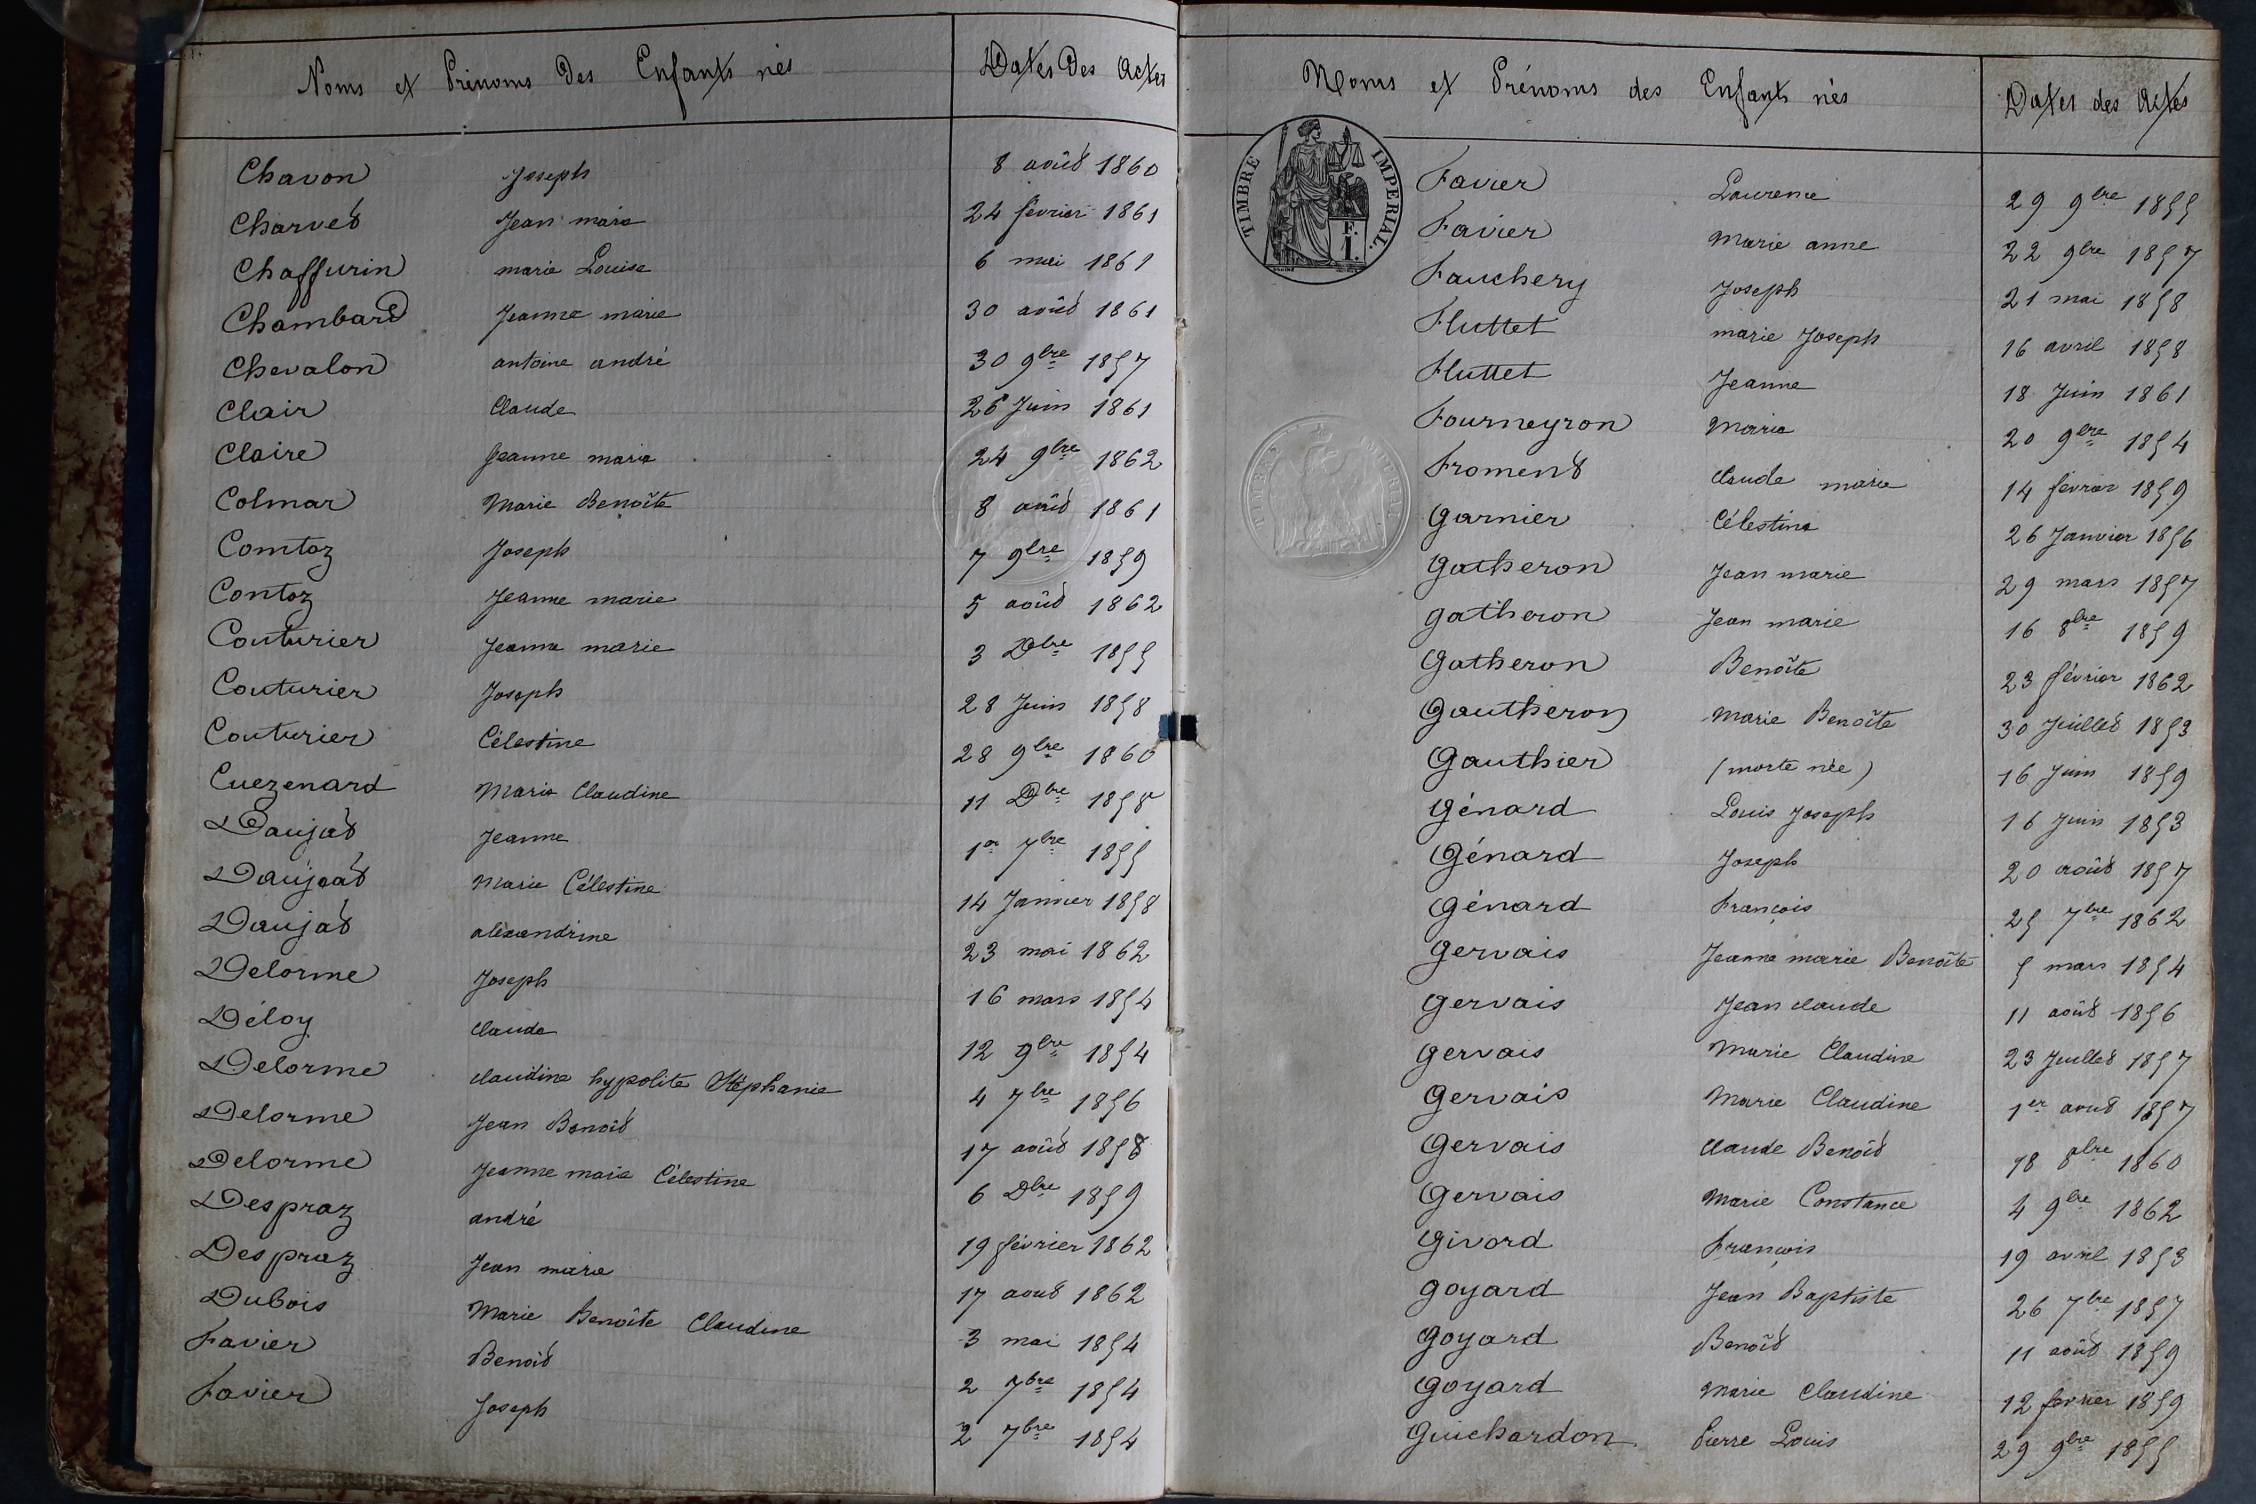 Noms et Prénoms des Enfants nés Dates des Actes
Chavon Joseph 8 août 1860
Charvet Jean marie 24 février 1861
Chaffurin marie Louise 6 mai 1861
Chambard Jeanne marie 30 août 1861
Chevalon antoine andré 30 9bre 1857
Clair Claude 26 Juin 1861
Claire Jeanne marie 24 9bre 1862
Colmar Marie Benoîte 8 août 1861
Comtoz Joseph 7 9bre 1859
Contoz Jeanne marie 5 août 1862
Couturier Jeanne marie 3 Dbre 1855
Couturier Joseph 28 Juin 1858
Couturier Célestine 28 9bre 1860
Cuezenard Marie Claudine 11 Dbre 1858
Daujat Jeanne 1er 7bre 1855
Daujat Marie Célestine 14 Janvier 1858
Daujat alexandrine 23 mai 1862
Delorme Joseph 16 mars 1854
Déloy Claude 12 9bre 1854
Delorme Claudine hypolite Stéphanie 4 7bre 1856
Delorme Jean Benoit 17 août 1858
Delorme Jeanne marie Célestine 6 Dbre 1859
Despraz andré 19 février 1862
Despraz Jean marie 17 aout 1862
Dubois Marie Benoîte Claudine 3 mai 1854
Favier Benoit 2 7bre 1854
Favier Joseph 2 7bre 1854
Noms et Prénoms des Enfants nés Dates des Actes
TIMBRE IMPERIAL.
F.
1.
Favier Laurence 29 9bre 1855
Favier Marie anne 22 9bre 1857
Fauchery Joseph 21 mai 1858
Fluttet marie Joseph 16 avril 1858
Fluttet Jeanne 18 Juin 1861
Fourneyron Marie 20 9bre 1854
Froment Claude marie 14 février 1859
Garnier Célestine 26 Janvier 1856
Gatheron Jean marie 29 mars 1857
Gatheron Jean marie 16 8bre 1859
Gatheron Benoîte 23 février 1862
Gautheron Marie Benoîte 30 Juillet 1853
Gauthier (morte née) 16 Juin 1859
Génard Louis Joseph 16 Juin 1853
Génard Joseph 20 août 1857
Génard François 25 7bre 1862
Gervais Jeanne marie Benoîte 5 mars 1854
Gervais Jean Claude 11 août 1856
Gervais Marie Claudine 23 Juillet 1857
Gervais Marie Claudine 1er aout 1857
Gervais Claude Benoît 18 8bre 1860
Gervais Marie Constance 4 9bre 1862
Givord François 19 avril 1853
Goyard Jean Baptiste 26 7bre 1857
Goyard Benoît 11 août 1859
Goyard Marie Claudine 12 fevrier 1859
Guichardon Pierre Louis 29 9bre 1855